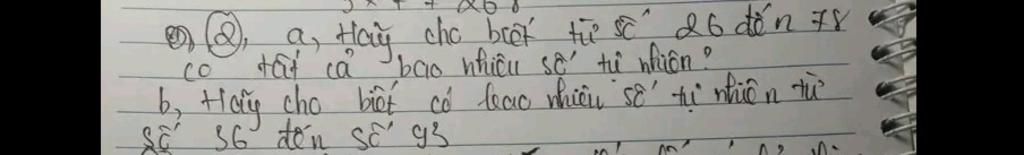 ②, a, Hãy cho biết từ số 26 đến 78
có tất cả bao nhiêu số tự nhiên?
b, Hãy cho biết có bao nhiêu số tự nhiên từ
số 36 đến số 93